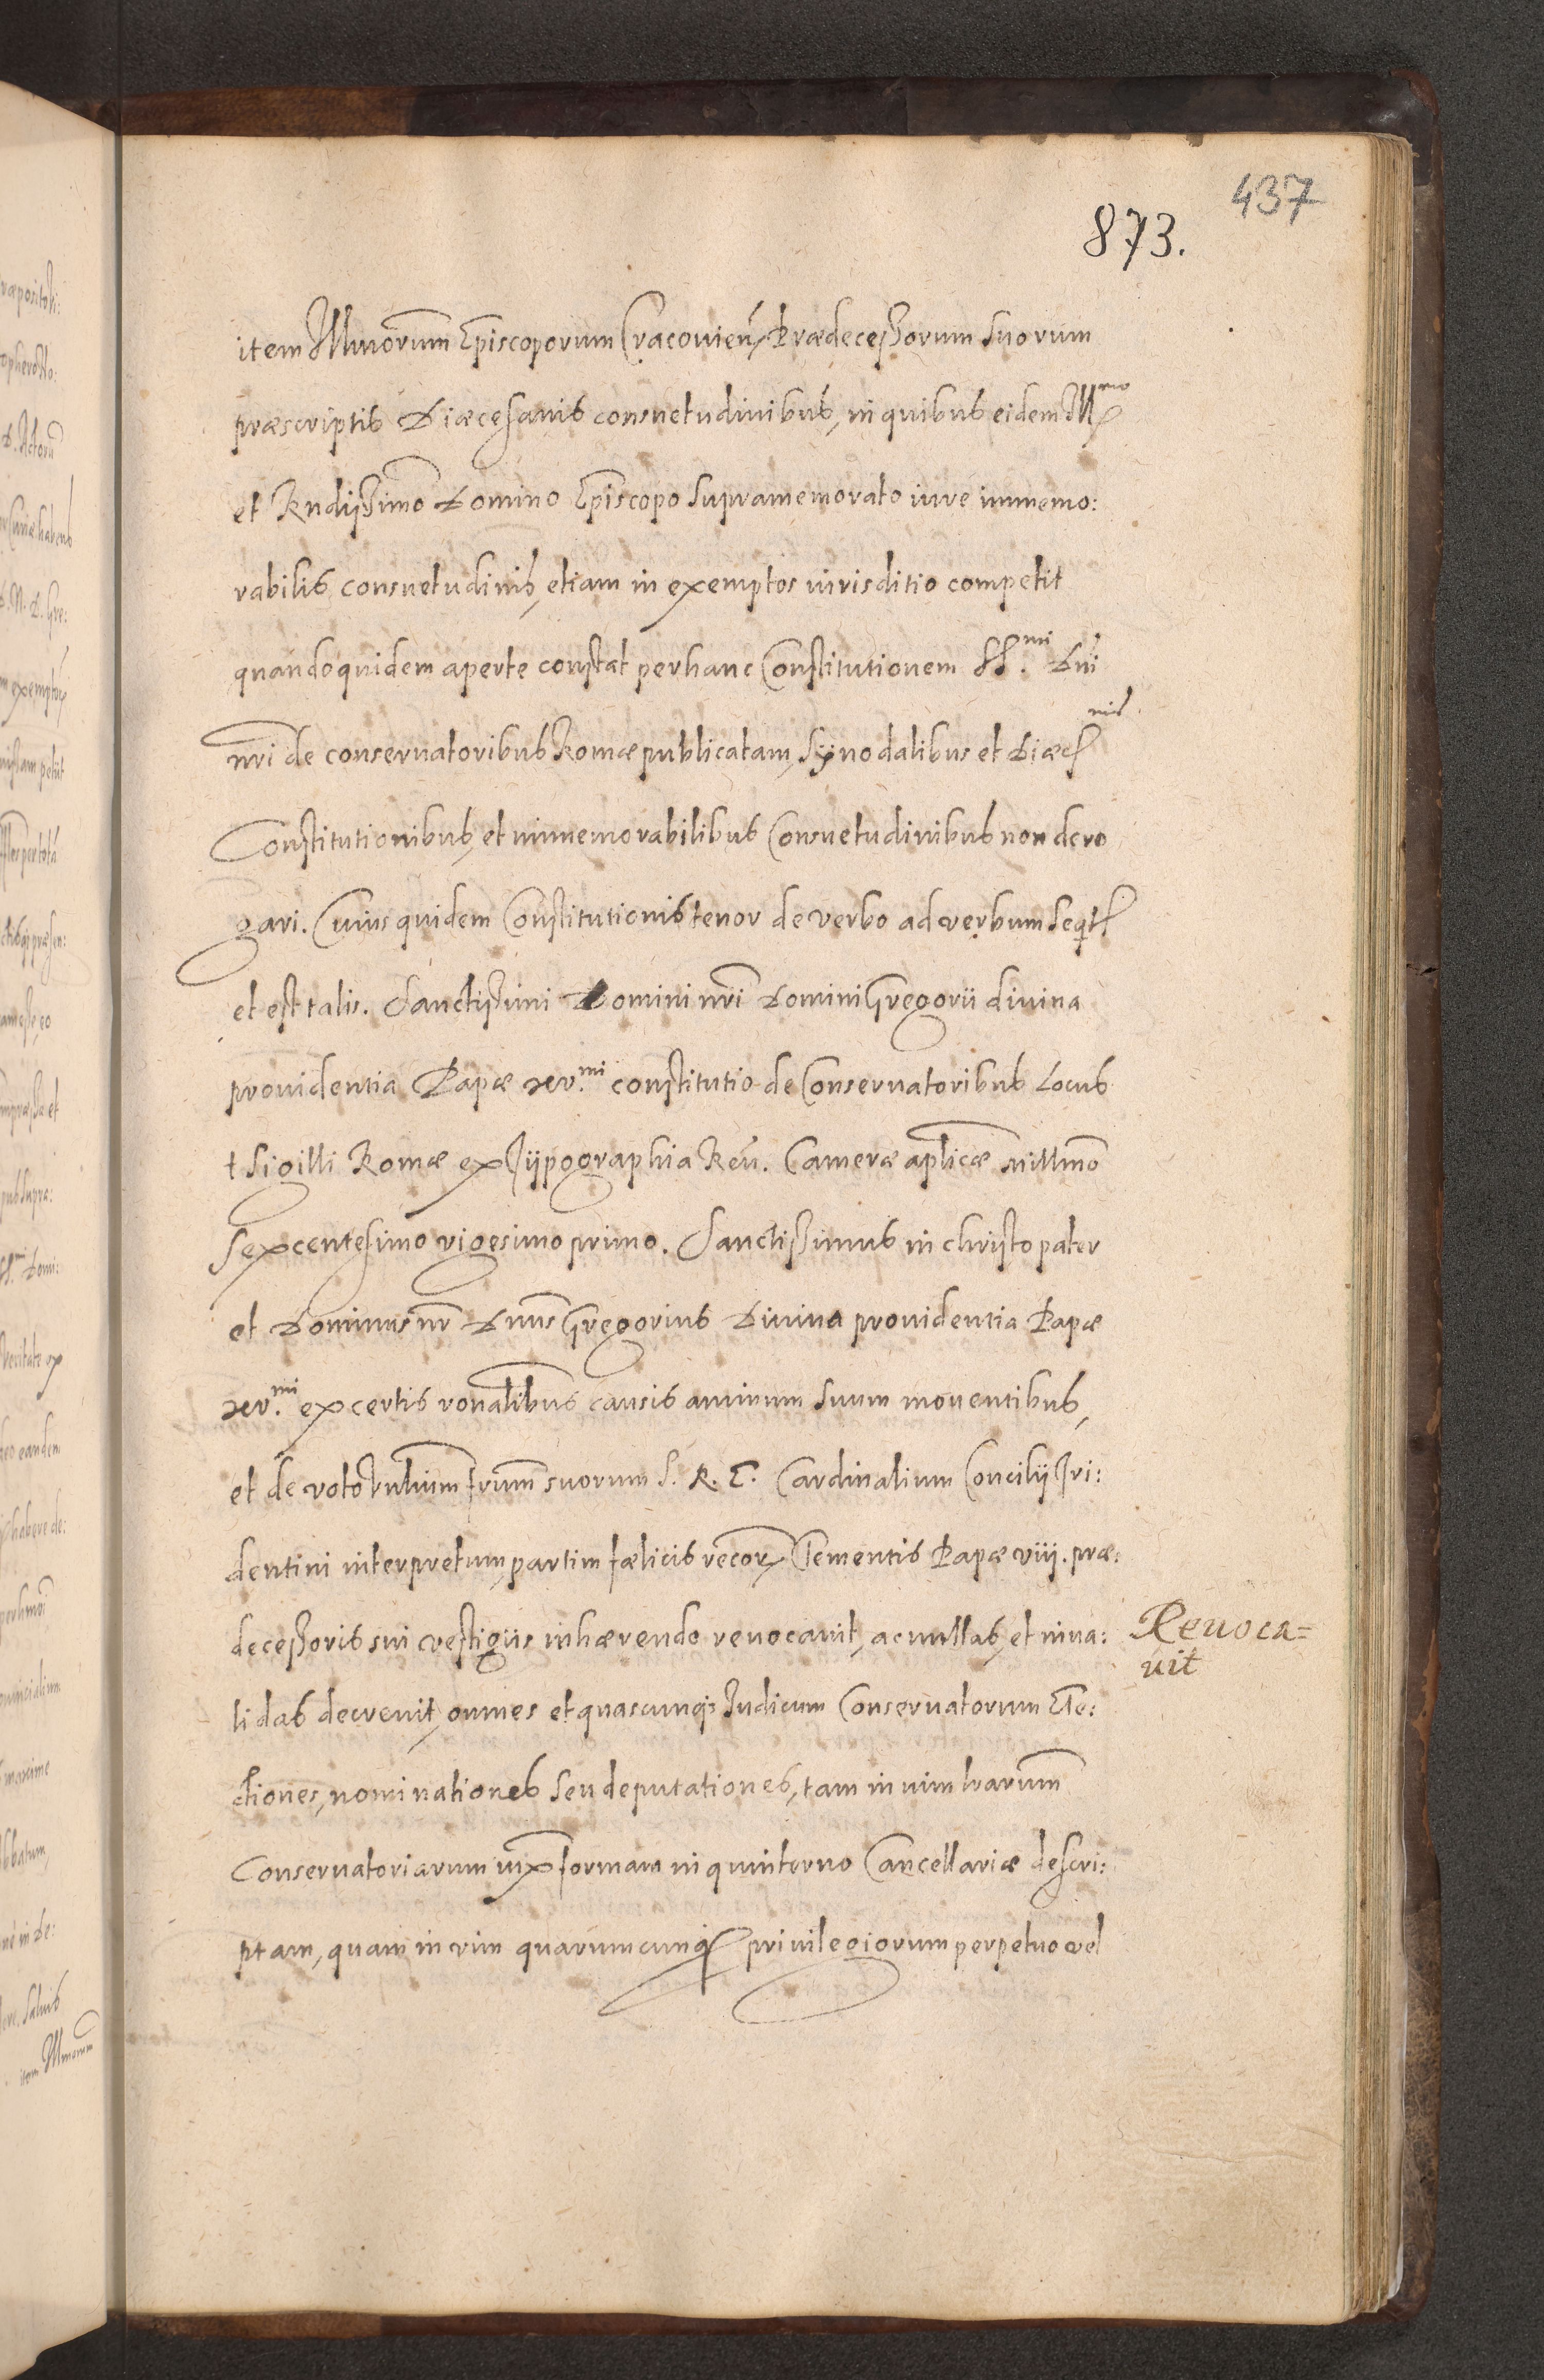 437
873.
item Illmorum Episcoporum Cracovien, Prædecessorum suorum
præscriptis Diæcesanis consuetudinibus, in quibus eidem Illmo
et Rndissimo Domino Episcopo supramemorato iure immemo:
rabilis consuetudinis, etiam in exemptos iurisditio competit
quandoquidem aperte constat per hanc Constitutionem SS.mi Dni
nri de conservatoribus Romæ publicatam, Synodalibus et Diæcnis
Constitutionibus, et immemorabilibus Consuetudinibus non dero
gari. Cuius quidem Constitutionis tenor de verbo ad verbum seqtr
et est talis. Sanctissimi Domini nri Domini Gregorii divina
providentia Papæ xv.mi constitutio de Conservatoribus Locus
t Sigilli Romæ ex Typographia Ren. Cameræ aplicæ millmo
sexcentesimo vigesimo primo. Sanctissimus in christo pater
et Dominus nr Dnus Gregorius Divina providentia Papæ
xv.mi ex certis ronalibus causis animum suum moventibus,
et de voto Rulium frum suorum S. R. E. Cardinalium Concilij Tri:
dentini interpretum, partim fælicis recor, Clementis Papæ viij. præ:
decessoris sui vestigiis inhærendo revocavit, ac nullas, et inva:
Revoca=
vit
lidas decrevit, omnes et quascunq; Iudicum Conservatorum Ele:
ctiones, nominationes seu deputationes, tam in vim lrarum
Conservatoriarum iuxa formam in quinterno Cancellariæ descri:
ptam, quam in vim quarumcunq privilegiorum perpetuo vel